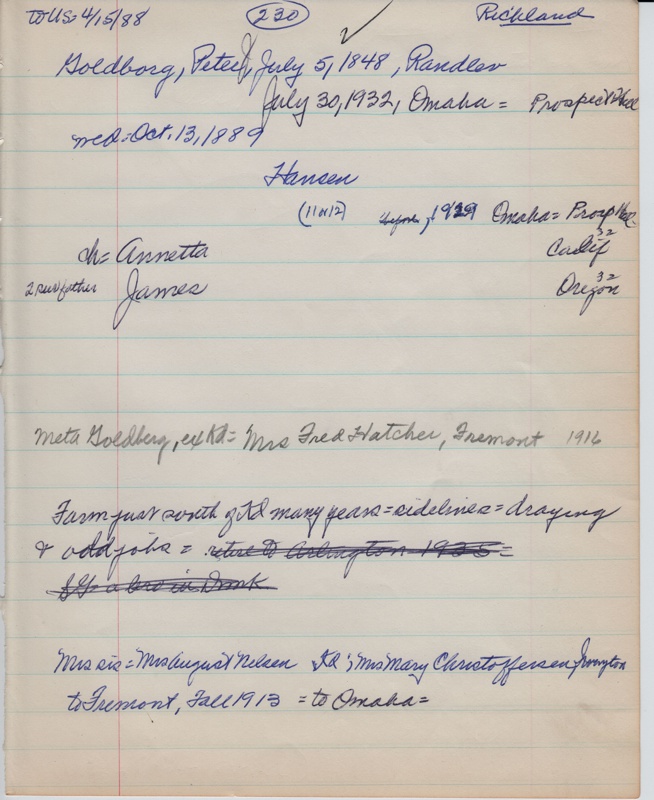 to US=4/15/88 230 Richland
Goldborg, Peter J, July 5, 1848, Randlev
July 30, 1932, Omaha = Prospect Hill
med=Oct. 13, 1889
Hansen
(11 or 12) 1929 Omaha = Prosp Hill
32
ch= Annetta Calif
32
2 surv father James Oregon
Meta Goldberg, ex Kd= Mrs Fred Hatcher, Fremont 1916
Farm just south of Kd many years = sidelines = draying
& odd jobs = retire to Arlington 1925 =
& G= a bro in Dmk
Mrs sis = Mrs August Nelsen Kd; Mrs Mary Christoffersen, Irvington
to Fremont, Fall 1913 = to Omaha =